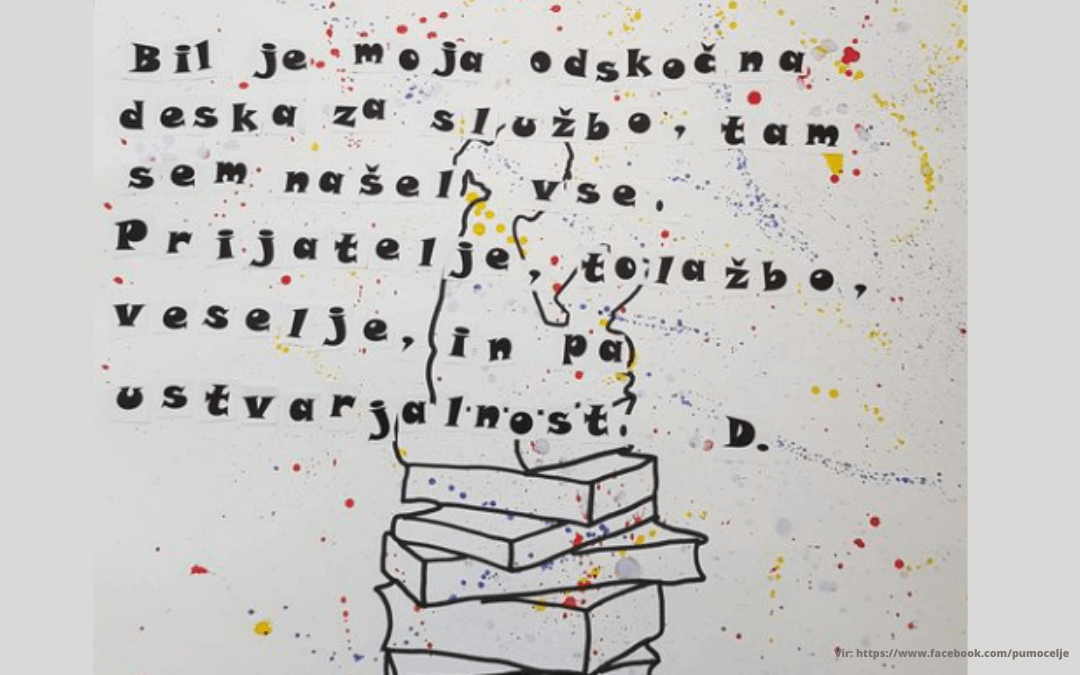 Bil je moja odskočna
deska za službo, tam
sem našel vse.
Prijatelje, tolažbo,
veselje, in pa
ustvarjalnost. D.
Vir: https://www.facebook.com/pumocelje